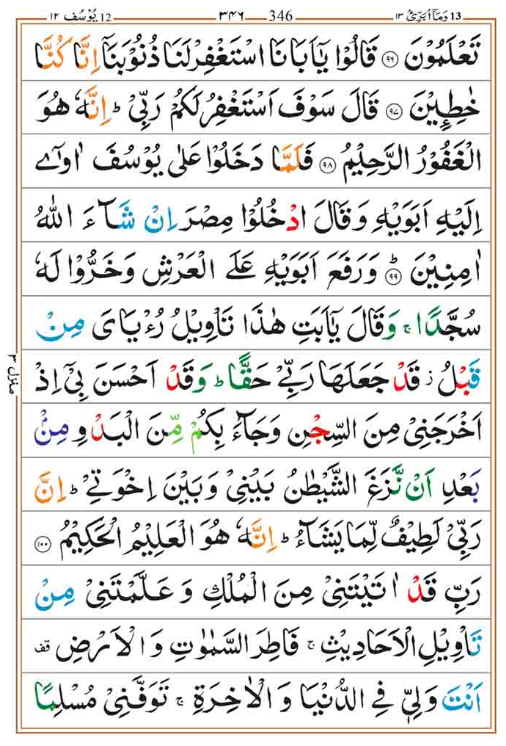 ١٢ يُوْسُف 12 ٣٤٦ 346 ١٣ وَمَاۤ اُبَرِّئُ 13
تَعْلَمُوْنَ ﴿٩٦﴾ قَالُوْا يٰۤاَبَانَا اسْتَغْفِرْ لَنَا ذُنُوْبَنَاۤ اِنَّا كُنَّا
خٰطِـِٕيْنَ ﴿٩٧﴾ قَالَ سَوْفَ اَسْتَغْفِرُ لَكُمْ رَبِّيْ ؕ اِنَّهٗ هُوَ
الْغَفُوْرُ الرَّحِيْمُ ﴿٩٨﴾ فَلَمَّا دَخَلُوْا عَلٰى يُوْسُفَ اٰوٰۤى
اِلَيْهِ اَبَوَيْهِ وَقَالَ ادْخُلُوْا مِصْرَ اِنْ شَآءَ اللّٰهُ
اٰمِنِيْنَ ﴿٩٩﴾ؕ وَرَفَعَ اَبَوَيْهِ عَلَى الْعَرْشِ وَخَرُّوْا لَهٗ
سُجَّدًا ۚ وَقَالَ يٰۤاَبَتِ هٰذَا تَاْوِيْلُ رُءْيَايَ مِنْ
قَبْلُ ؗ قَدْ جَعَلَهَا رَبِّيْ حَقًّا ؕ وَقَدْ اَحْسَنَ بِيْۤ اِذْ
اَخْرَجَنِيْ مِنَ السِّجْنِ وَجَآءَ بِكُمْ مِّنَ الْبَدْوِ مِنْۢ
بَعْدِ اَنْ نَّزَغَ الشَّيْطٰنُ بَيْنِيْ وَبَيْنَ اِخْوَتِيْ ؕ اِنَّ
رَبِّيْ لَطِيْفٌ لِّمَا يَشَآءُ ؕ اِنَّهٗ هُوَ الْعَلِيْمُ الْحَكِيْمُ ﴿١٠٠﴾
رَبِّ قَدْ اٰتَيْتَنِيْ مِنَ الْمُلْكِ وَعَلَّمْتَنِيْ مِنْ
تَاْوِيْلِ الْاَحَادِيْثِ ۚ فَاطِرَ السَّمٰوٰتِ وَالْاَرْضِ قف
اَنْتَ وَلِيّٖ فِي الدُّنْيَا وَالْاٰخِرَةِ ۚ تَوَفَّنِيْ مُسْلِمًا
منزل ٣